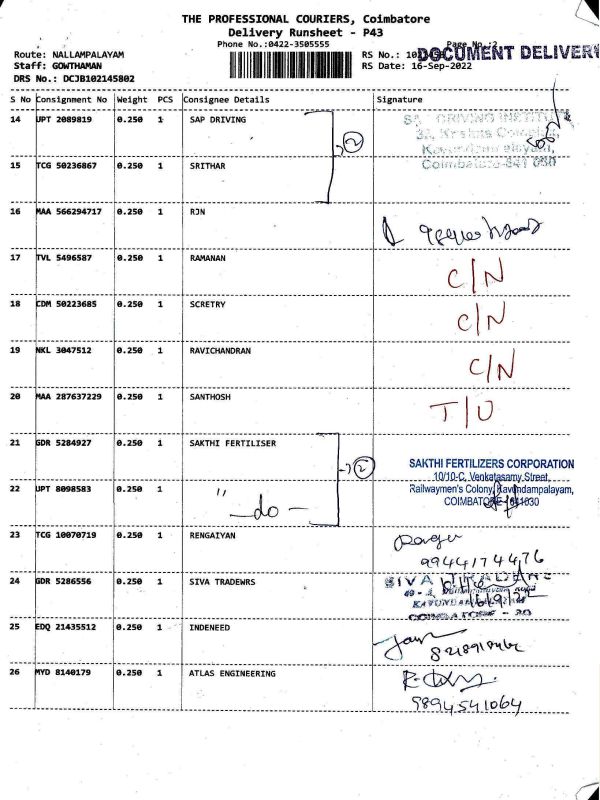 THE PROFESSIONAL COURIERS, Coimbatore
Delivery Runsheet - P43
Phone No.:0422-3505555
Page No.:2
Route: NALLAMPALAYAM
RS No.:
DOCUMENT DELIVERY
Staff: GOWTHAMAN
RS Date: 16-Sep-2022
DRS No.: DCJB102145802
S No Consignment No Weight PCS Consignee Details Signature
14 UPT 2089819 0.250 1 SAP DRIVING
2
15 TCG 50236867 0.250 1 SRITHAR
Coimbatore-641 030
16 MAA 566294717 0.250 1 RJN
17 TVL 5496587 0.250 1 RAMANAN C/N
18 CDM 50223685 0.250 1 SCRETRY C/N
19 NKL 3047512 0.250 1 RAVICHANDRAN C/N
20 MAA 287637229 0.250 1 SANTHOSH T/U
21 GDR 5284927 0.250 1 SAKTHI FERTILISER
2
SAKTHI FERTILIZERS CORPORATION
10/10-C, Venkatasamy Street,
Railwaymen's Colony, Kavundampalayam,
COIMBATORE - 641030
22 UPT 8098583 0.250 1 " —do—
23 TCG 10070719 0.250 1 RENGAIYAN
9944174476
24 GDR 5286556 0.250 1 SIVA TRADEWRS
SIVA
25 EDQ 21435512 0.250 1 INDENEED
26 MYD 8140179 0.250 1 ATLAS ENGINEERING
9894541064